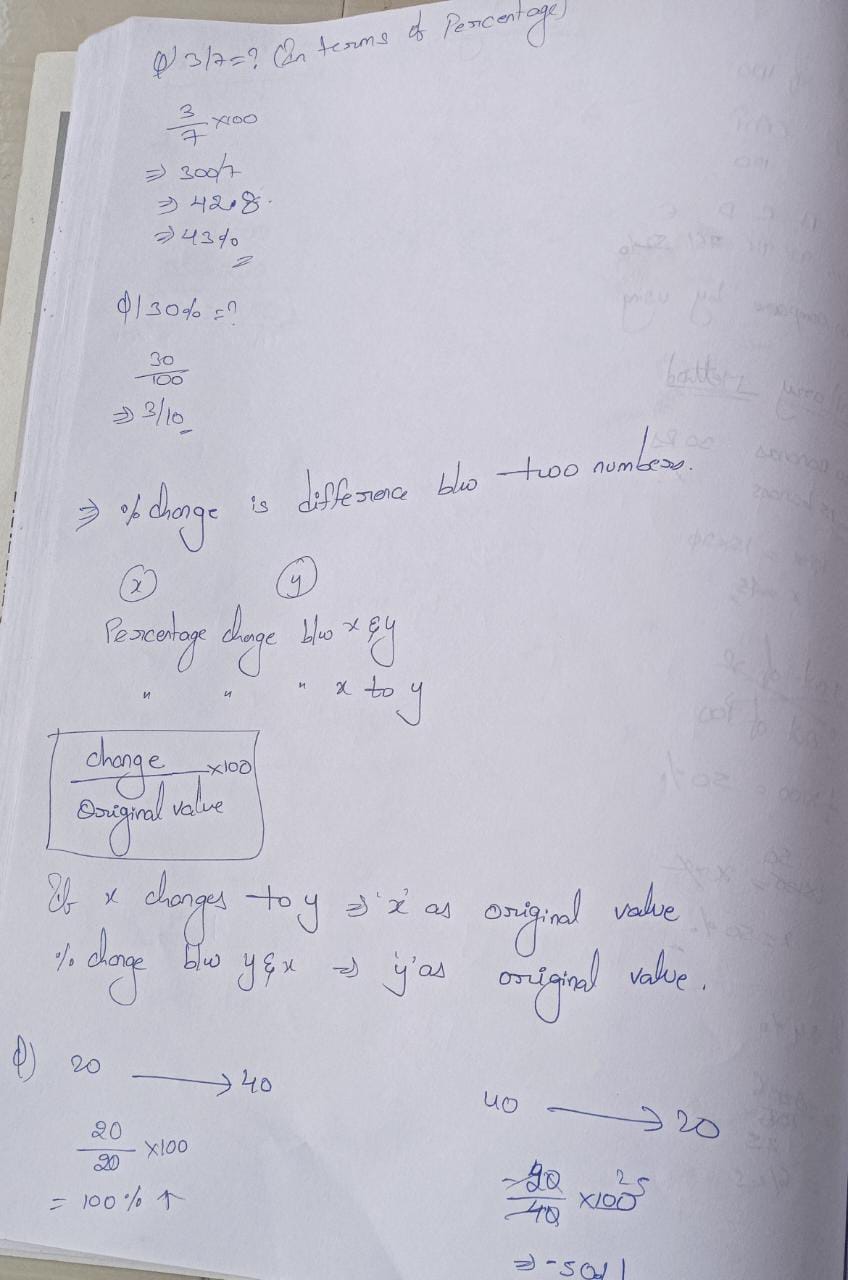 Q) 3/7=? (In terms of Percentage)
3/7 ×100
⇒ 300/7
⇒ 42.8.
⇒ 43%
Q) 30% =?
30/100
⇒ 3/10
⇒ % change is difference b/w two numbers.
x y
Percentage change b/w x & y
" " " x to y
change/Original value ×100
If x changes to y ⇒ 'x' as original value
% change b/w y & x ⇒ 'y' as original value.
Q) 20 → 40
40 → 20
20/20 ×100
-20/40 ×100 25
= 100% ↑
⇒ -50%